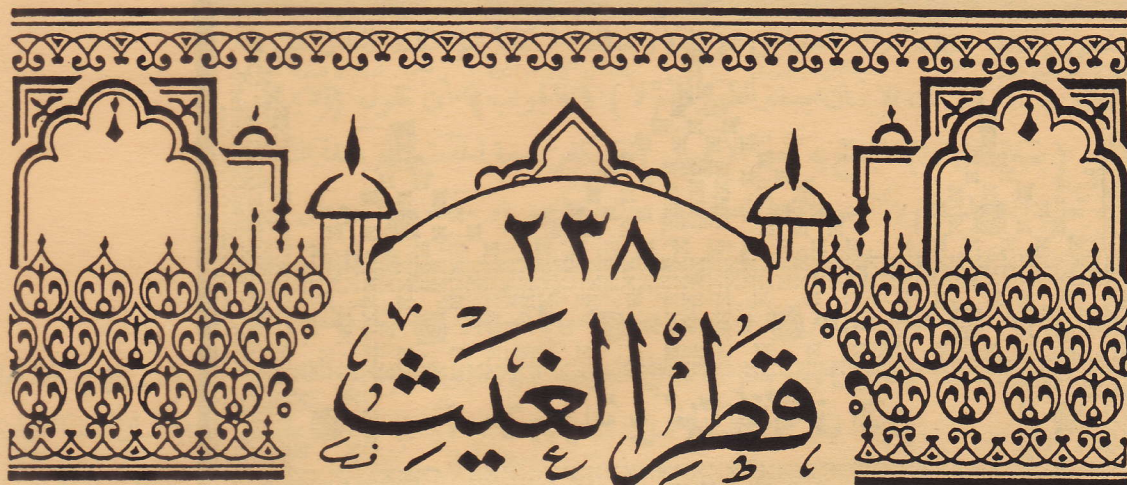 ٢٣٨
قطر الغيث